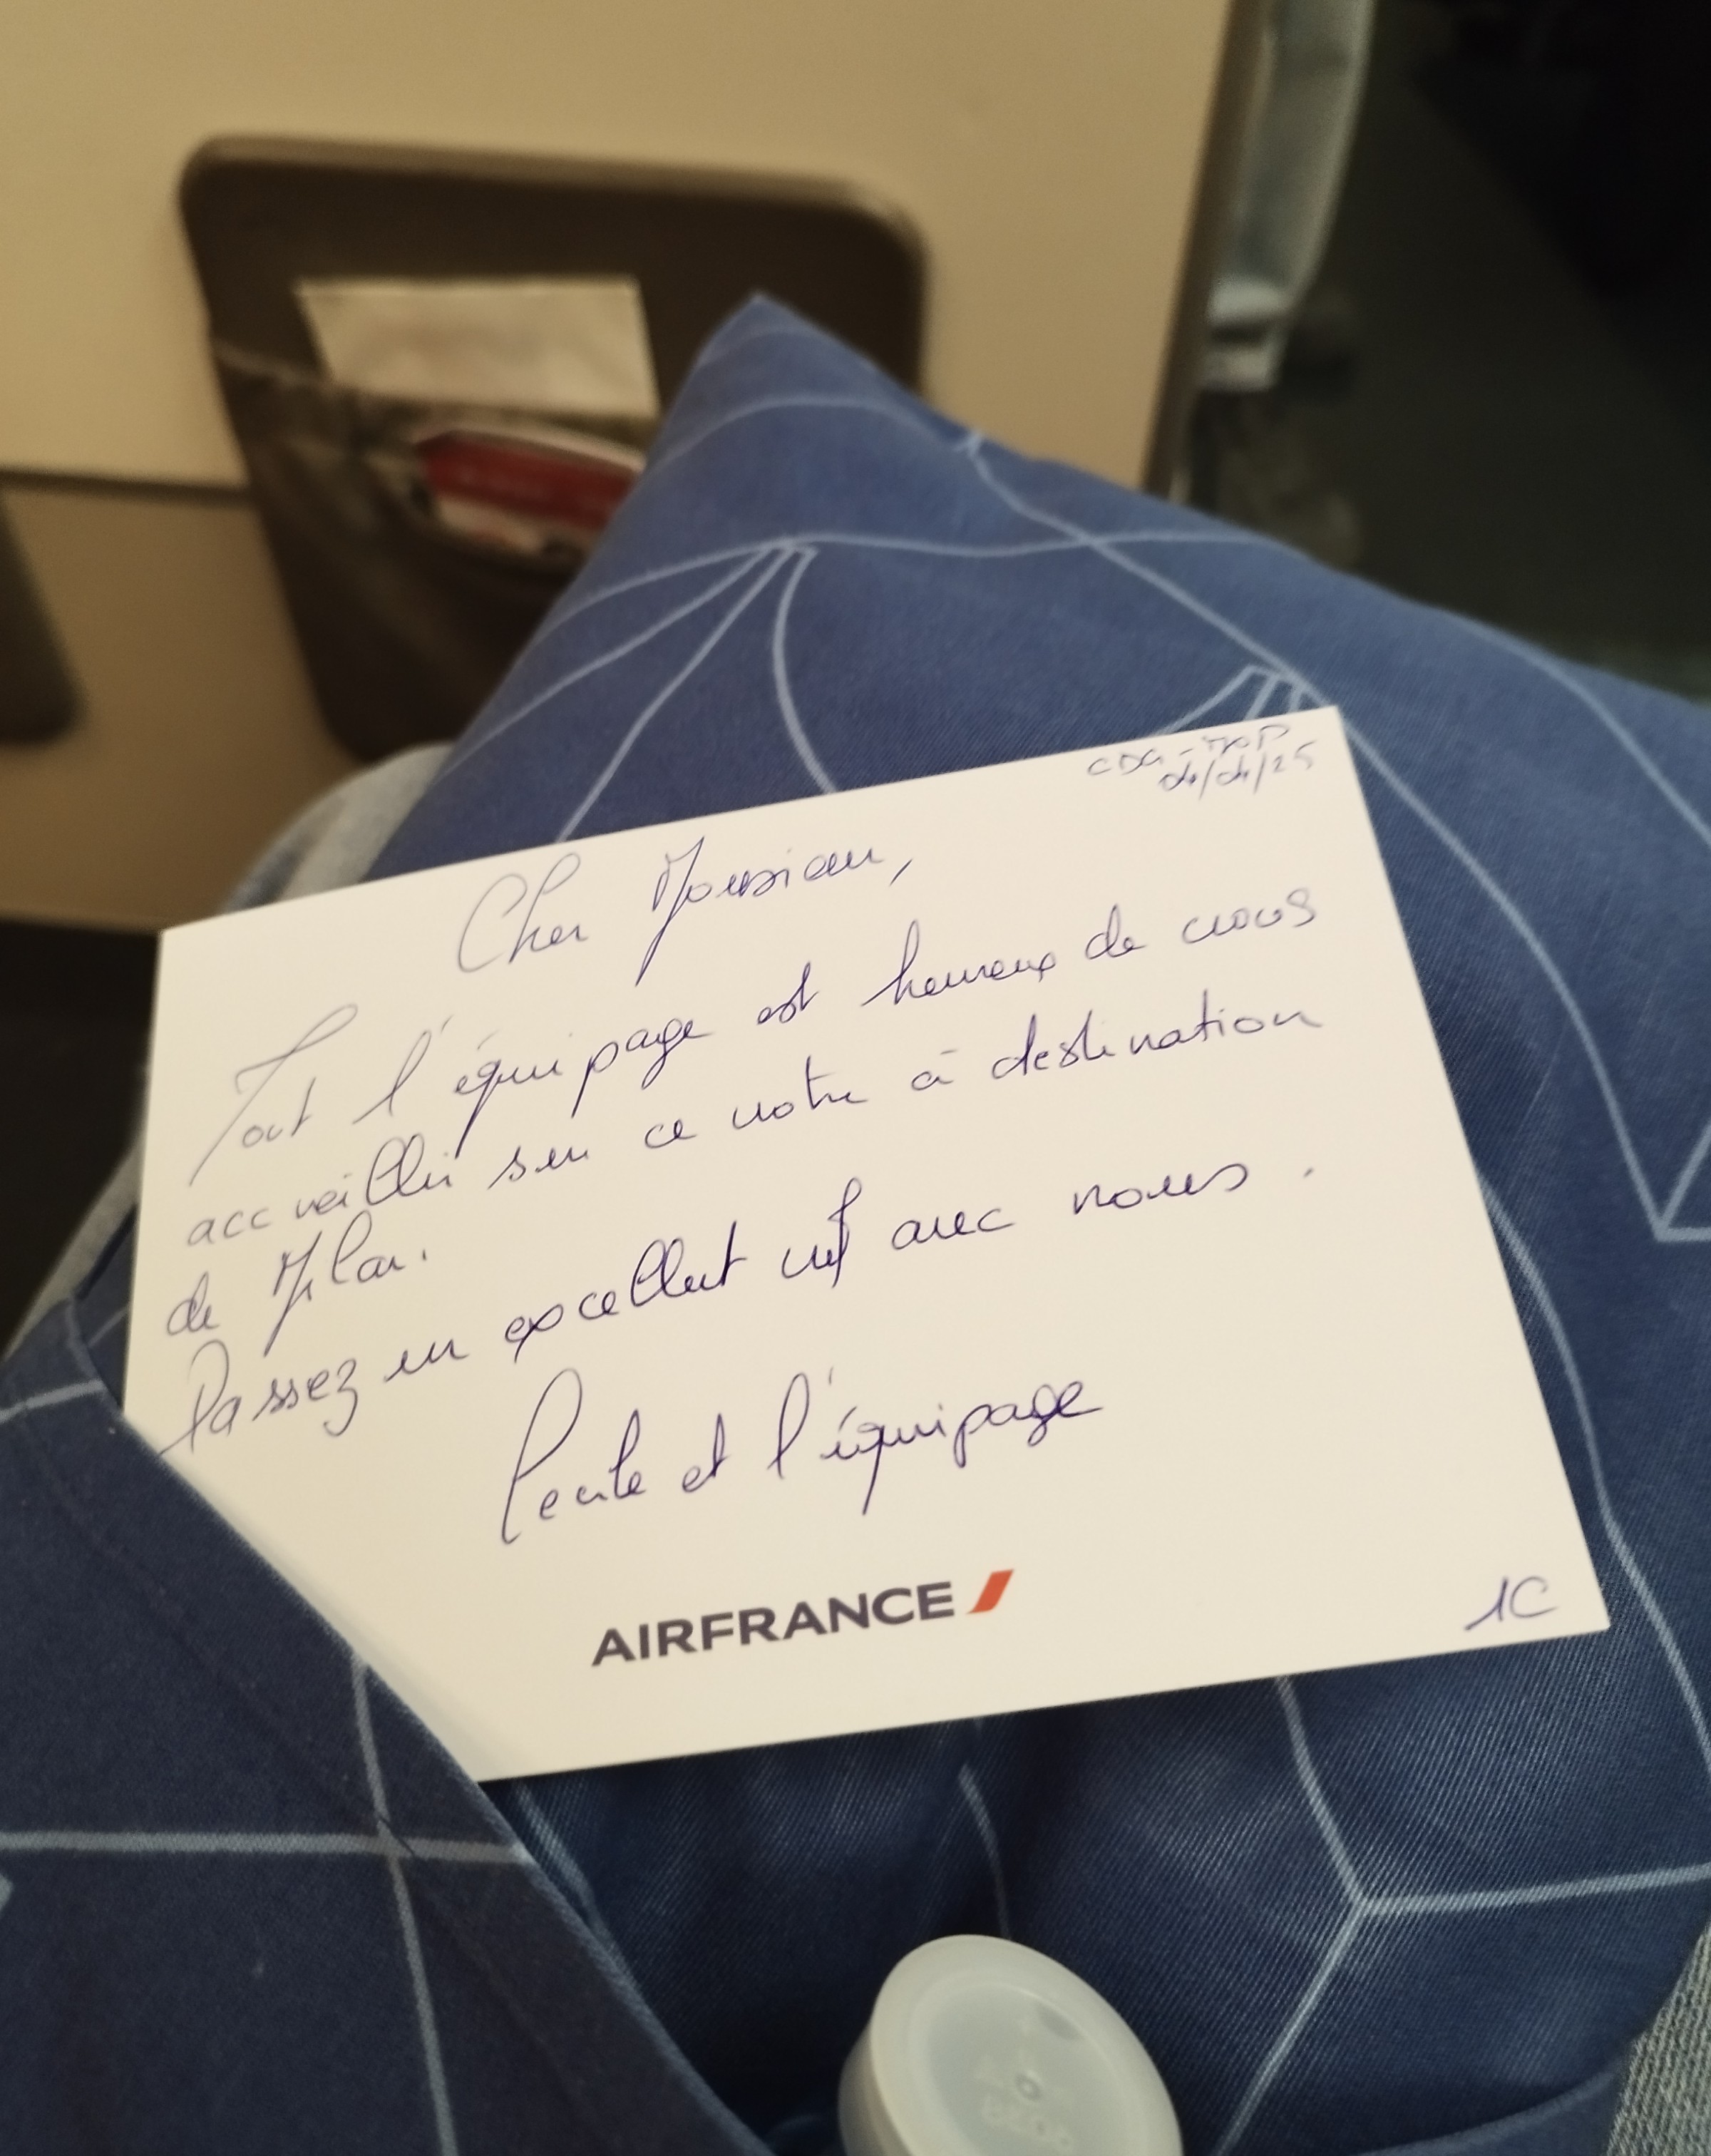 CDG-MXP
04/04/25
Cher Monsieur,
Tout l'équipage est heureux de vous
accueillir sur ce notre à destination
de Milan.
Passez un excellent vol avec nous.
et l'équipage
AIRFRANCE
1C